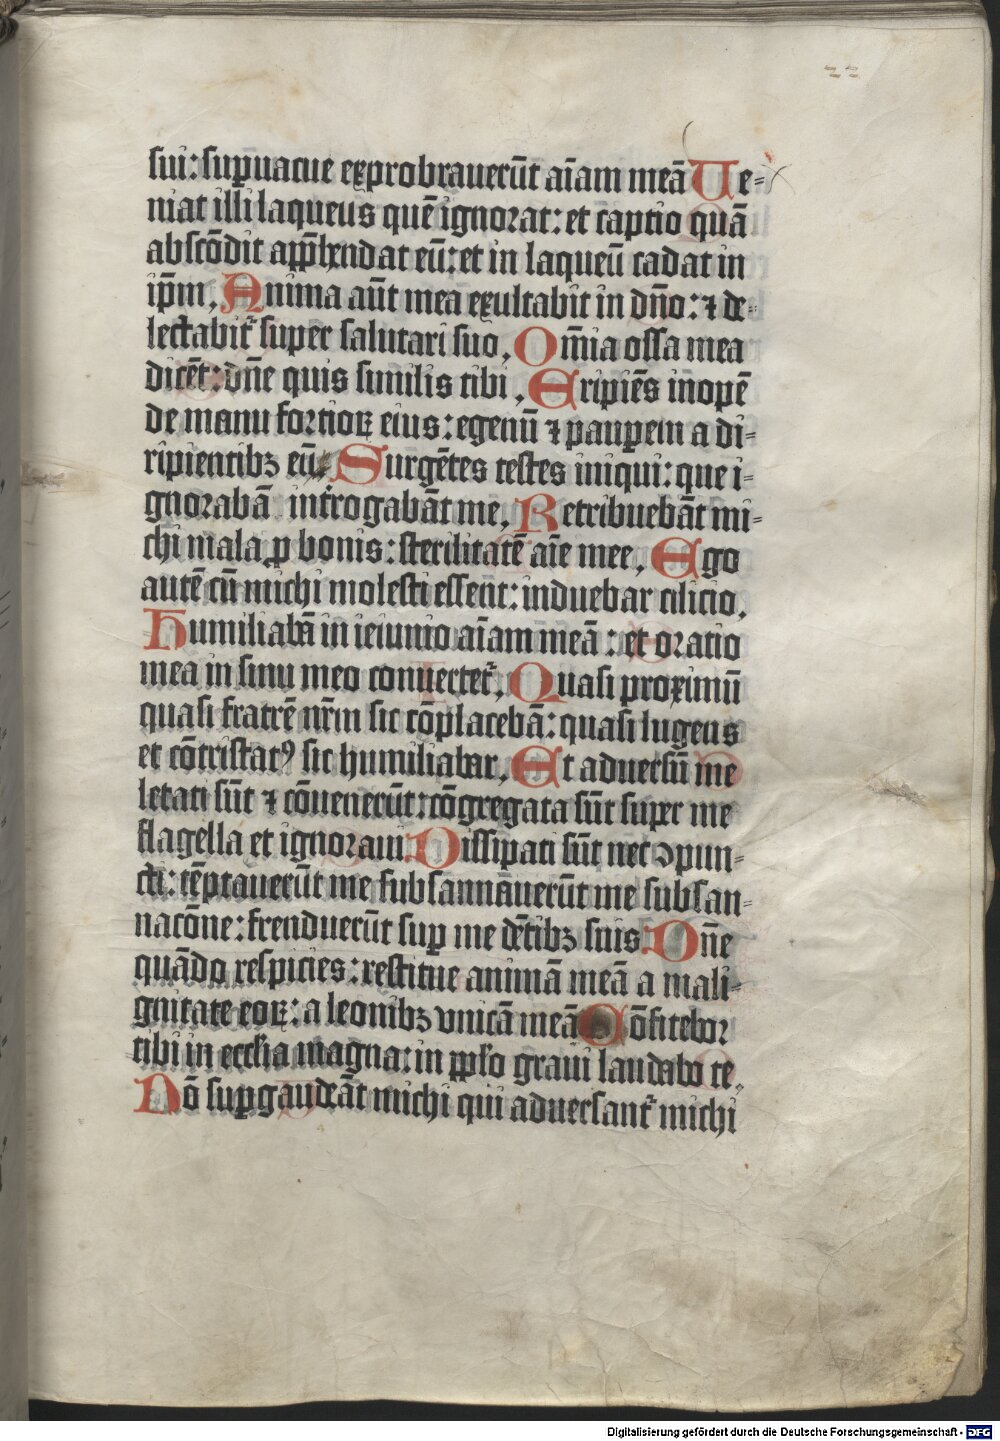 22
sui: suꝑuacue exprobrauerūt aīam meā Ue=
niat illi laqueus quē ignorat: et captio quā
abscōdit app̄hendat eū: et in laqueū cadat in
ip̄m. Anima aūt mea exultabit in dn̄o: ⁊ de=
lectabit᷑ super salutari suo. Om̄ia ossa mea
dicēt: dn̄e quis similis tibi. Eripiēs inopē
de manu fortioꝝ eius: egenū ⁊ pauꝑem a di=
ripientibꝫ eū. Surgētes testes iniqui: que i=
gnorabā int̄rogabāt me. Retribuebāt mi=
chi mala ꝓ bonis: sterilitatē aīe mee. Ego
autē cū michi molesti essent: induebar cilicio.
Humiliabā in ieiunio aīam meā: et oratio
mea in sinu meo conuertet᷑. Quasi proximū
quasi fratrē nr̄m sic cōplacebā: quasi lugens
et cōtristatꝯ sic humiliabar. Et aduersū me
letati sūt ⁊ cōuenerūt: cōgregata sūt super me
flagella et ignoraui. Dissipati sūt nec ꝯpun=
cti: tēptauerūt me subsannauerūt me subsan=
nacōne: frenduerūt suꝑ me dētibꝫ suis. Dn̄e
quādo respicies: restitue animā meā a mali=
gnitate eoꝝ: a leonibꝫ vnicā meā Cōfitebor
tibi in eccl̄ia magna: in pp̄lo graui laudabo te.
Nō suꝑgaudeāt michi qui aduersant᷑ michi
Digitalisierung gefördert durch die Deutsche Forschungsgemeinschaft - DFG